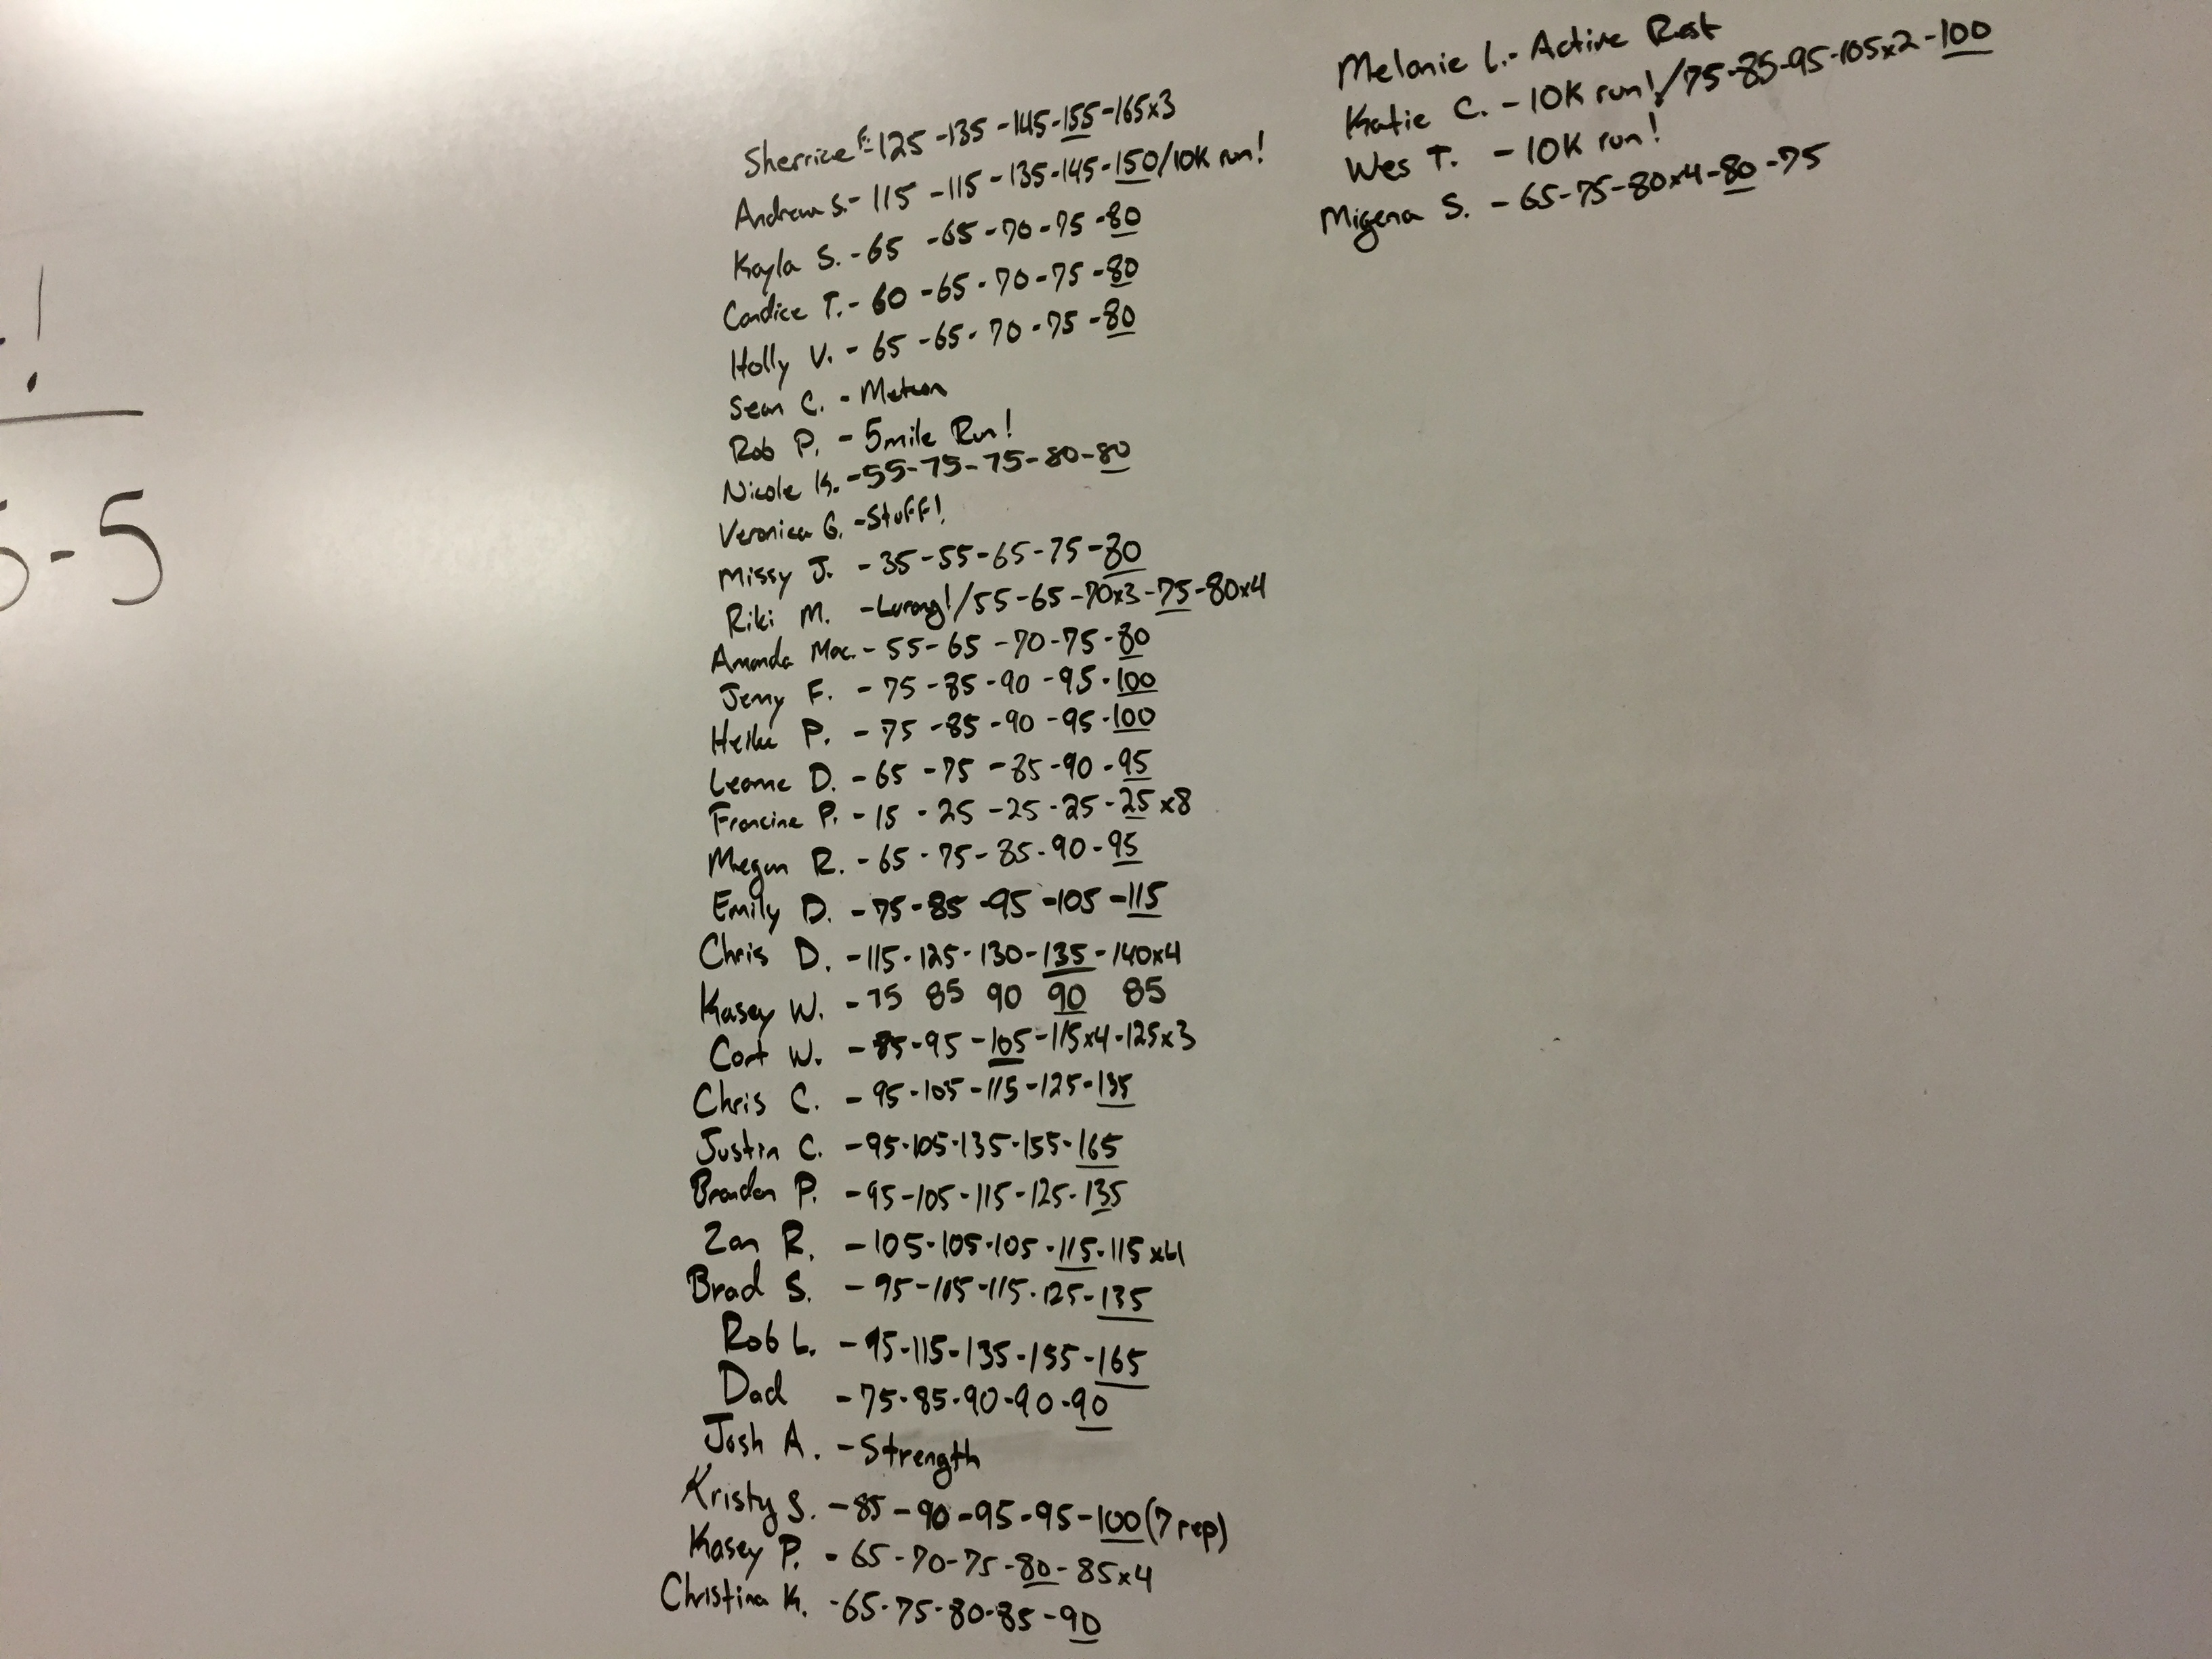 !
5-5
Sherrice F-125-135-145-155-165x3
Andrew S.-115-115-135-145-150/10K run!
Kayla S.-65-65-70-75-80
Candice T.-60-65-70-75-80
Holly V.-65-65-70-75-80
Sean C.-Metcon
Rob P.-5mile Run!
Nicole K.-55-75-75-80-80
Veronica G.-Stuff!
Missy J.-35-55-65-75-80
Riki M.-Lurong!/55-65-70x3-75-80x4
Amanda Mac.-55-65-70-75-80
Jenny F.-75-85-90-95-100
Heike P.-75-85-90-95-100
Leanne D.-65-75-85-90-95
Francine P.-15-25-25-25-25x8
Megan R.-65-75-85-90-95
Emily D.-75-85-95-105-115
Chris D.-115-125-130-135-140x4
Kasey W.-75 85 90 90 85
Cort W.-85-95-105-115x4-125x3
Chris C.-95-105-115-125-135
Justin C.-95-105-135-155-165
Brandon P.-95-105-115-125-135
Zan R.-105-105-105-115-115x4
Brad S.-95-105-115-125-135
Rob L.-95-115-135-155-165
Dad -75-85-90-90-90
Josh A.-Strength
Kristy S.-85-90-95-95-100(7rep)
Kasey P.-65-70-75-80-85x4
Christina K.-65-75-80-85-90
Melanie L.-Active Rest
Katie C.-10K run!/75-85-95-105x2-100
Wes T. -10K run!
Migena S.-65-75-80x4-80-75